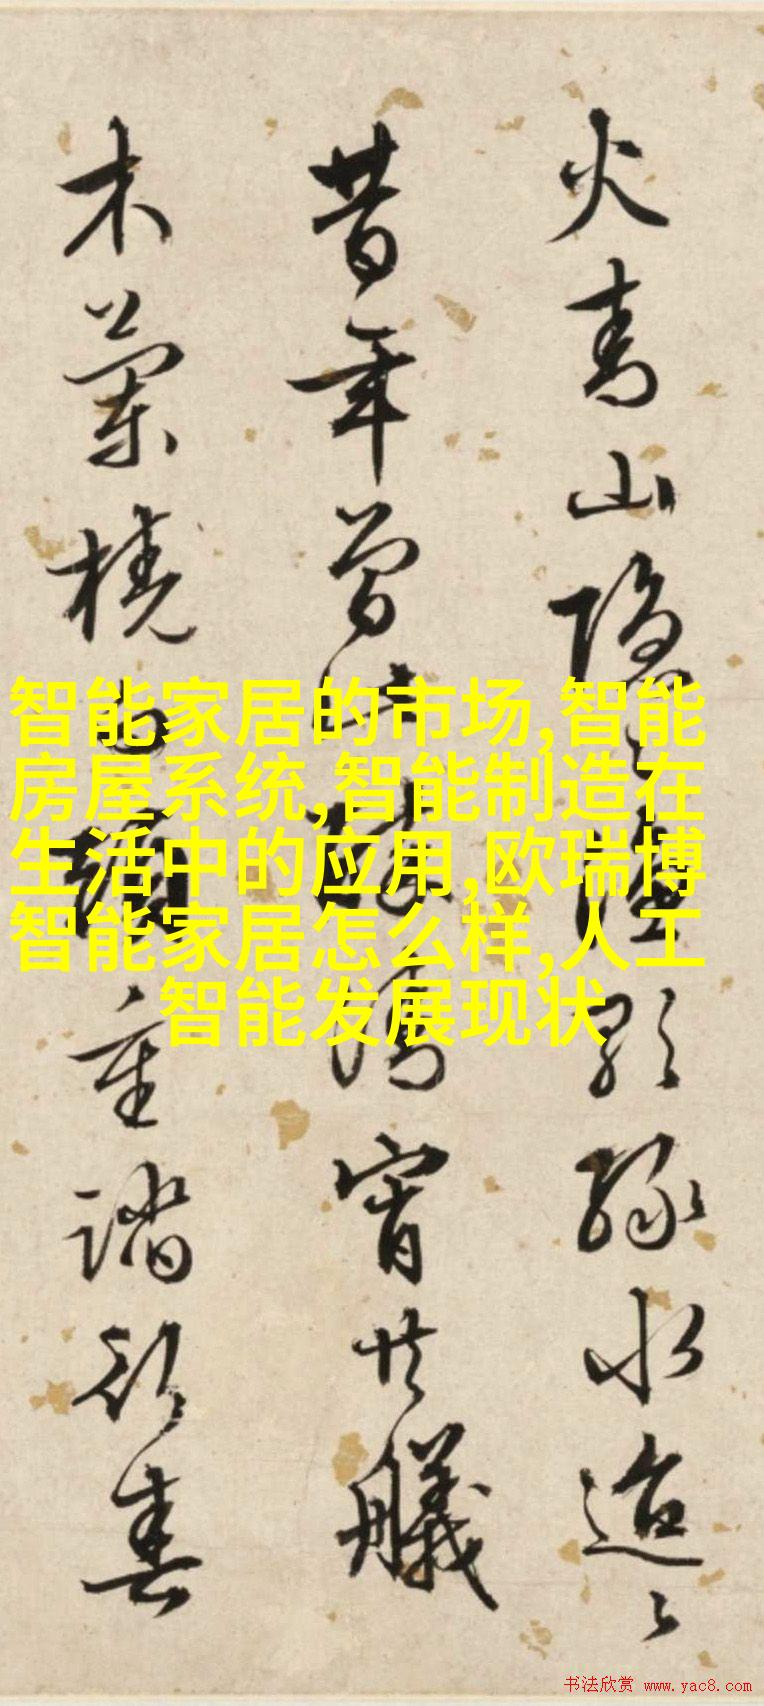 火青山隱影綠水迢〻
昔年曾清宵共艤
木蘭橈重踏春
智能家居的市场,智能
房屋系统,智能制造在
生活中的应用,欧瑞博
智能家居怎么样,人工
智能发展现状
书法欣赏 www.yac8.com